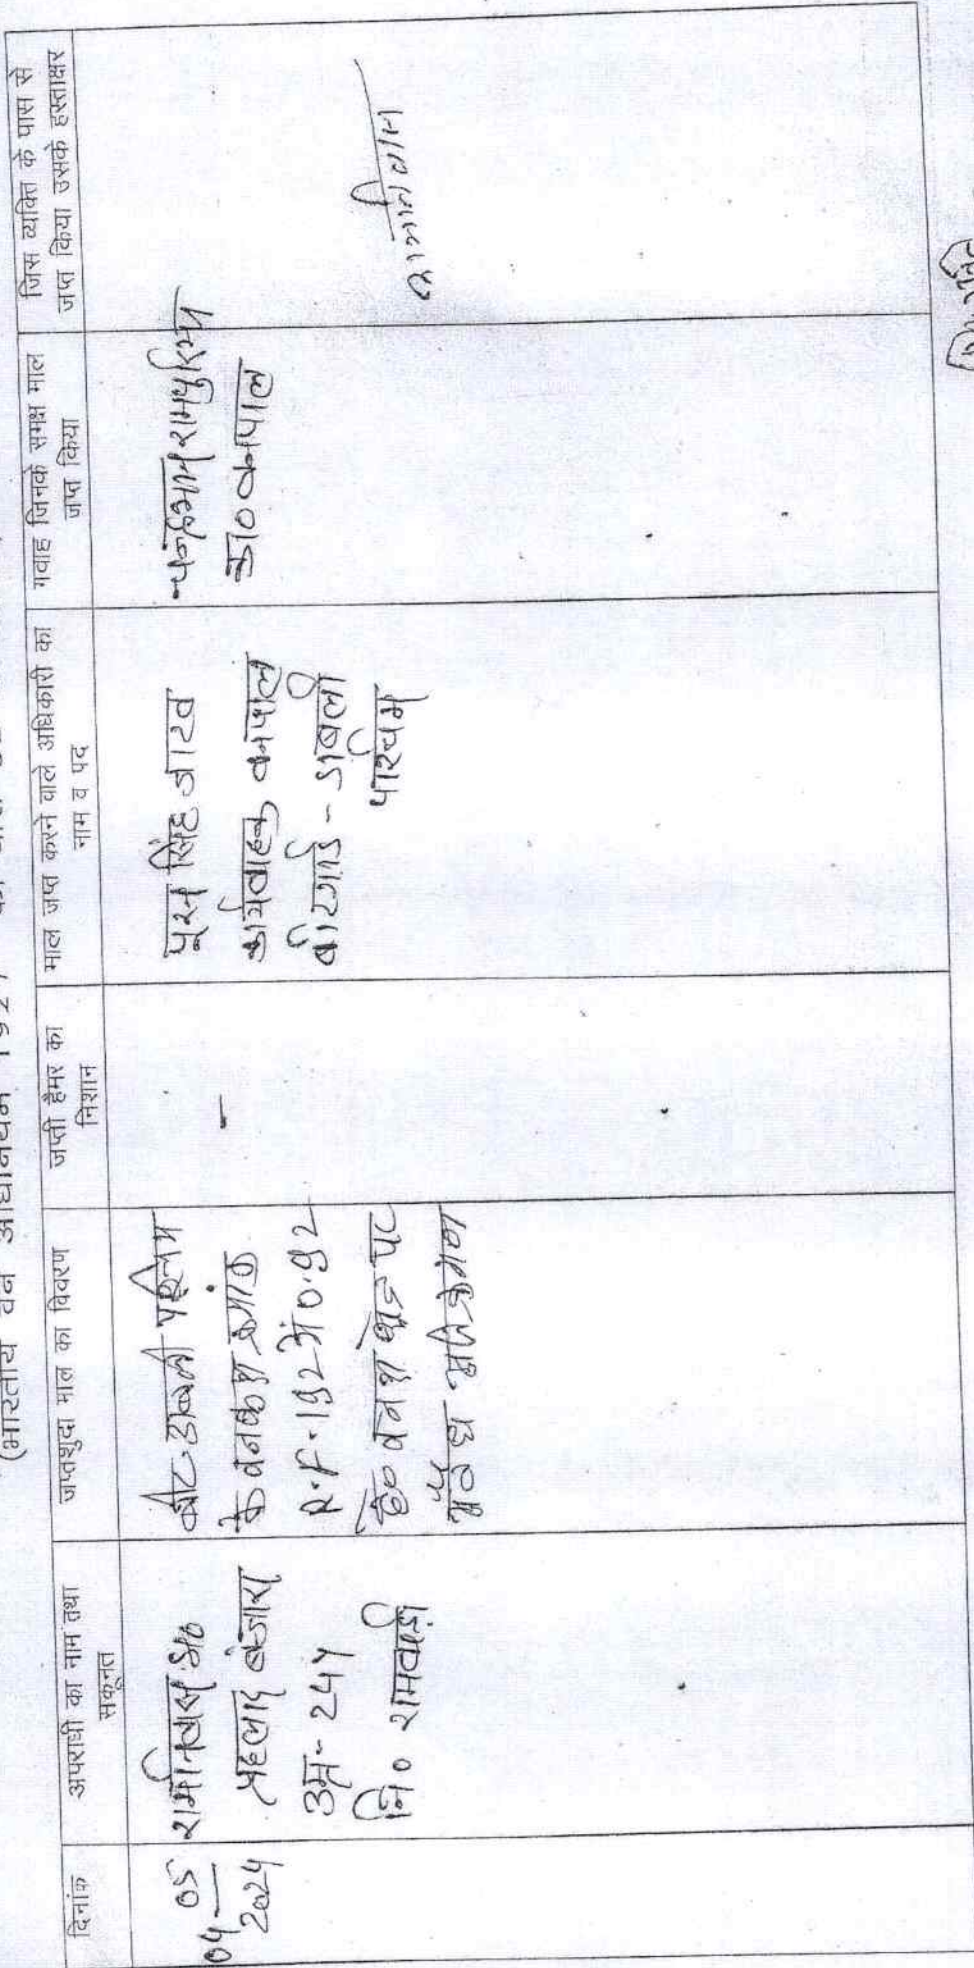 (भारतीय वन अधिनियम 1927
दिनांक
अपराधी का नाम तथा
सकूनत
जप्तशुदा माल का विवरण
जप्ती हेमर का
निशान
माल जप्त करने वाले अधिकारी का
नाम व पद
गवाह जिनके समक्ष माल
जप्त किया
जिस व्यक्ति के पास से
जप्त किया उसके हस्ताक्षर
04 05
2024
रामनिवास S/o
प्रहलाद बंजारा
उम्र - 24Y
नि० रामवाड़ी
बीट डाबली पश्चिम
के वनकक्ष क्रमांक
R.F. 192 में 0.92
हे० वन क्षेत्र पर
अतिक्रमण
-
पूरन सिंह जाटव
कार्यवाहक वनपाल
बीटगार्ड - डाबली
पश्चिम
चन्द्रभान रामपुरिया
का० वनपाल